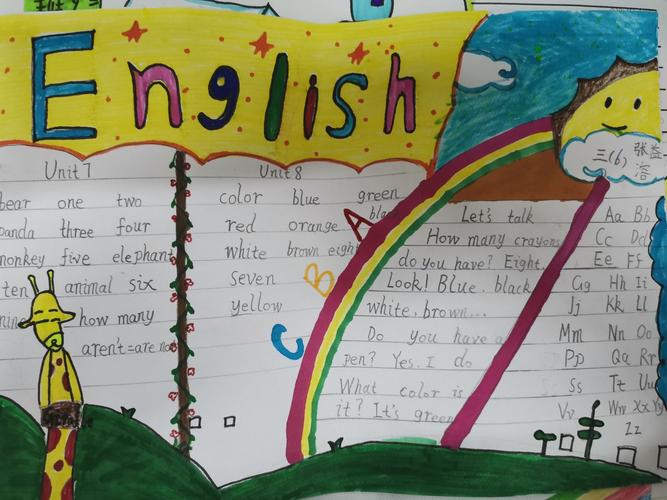 English
三(6) 张益溶
Unit 7
bear one two
panda three four
monkey five elephant
ten animal six
nine how many
aren't=are not
Unit 8
color blue green
black
red orange
white brown eight
seven
yellow
A
B
C
Let's talk
How many crayons
do you have? Eight.
Look! Blue. black
white. brown...
Do you have a
pen? Yes. I do
What color is
it? It's green
Aa Bb
Cc Dd
Ee Ff
Gg Hh Ii
Jj Kk Ll
Mm Nn Oo
Pp Qq Rr
Ss Tt Uu
Vv Ww Xx Yy
Zz